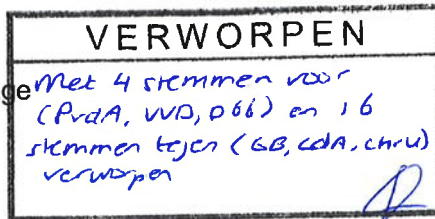 VERWORPEN
ge Met 4 stemmen voor
(PvdA, VVD, D66) en 16
stemmen tegen (GB, CDA, ChrU)
verworpen